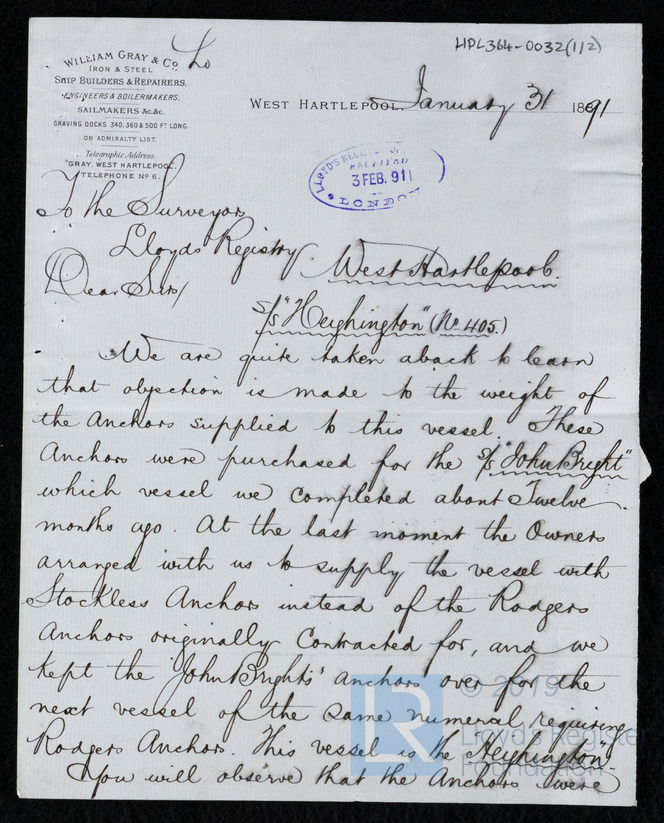 HPL364-0032(1/2)
WILLIAM GRAY & Co
Lo
IRON & STEEL
SHIP BUILDERS & REPAIRERS,
ENGINEERS & BOILERMAKERS,
SAILMAKERS &c.&c.
GRAVING DOCKS 340,360 & 500 FT LONG.
ON ADMIRALTY LIST.
Telegraphic Address.
"GRAY, WEST HARTLEPOOL."
TELEPHONE No 6.
WEST HARTLEPOOL. January 31 1891
LLOYD'S REGISTER OF
RECEIVED
3 FEB. 91
LONDON
To the Surveyors
Lloyds Registry.
West Hartlepool.
Dear Sirs/
s/s "Heighington" (No 405.)
We are quite taken aback to learn
that objection is made to the weight of
the Anchors supplied to this vessel. These
Anchors were purchased for the s/s "John Bright"
which vessel we completed about Twelve
months ago. At the last moment the Owners
arranged with us to supply the vessel with
Stockless Anchors instead of the Rodgers
Anchors originally Contracted for, and we
kept the "John Brights' anchors over for the
next vessel of the same numeral requiring
Rodgers Anchors. This vessel is the "Heighington".
You will observe that the Anchors were
LR
© 2019
Lloyd's Register
Foundation